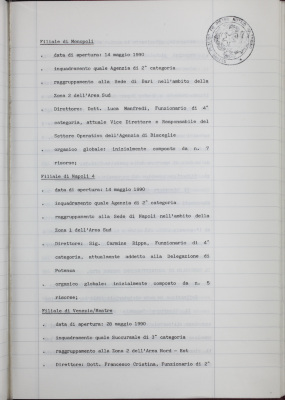 Filiale di Monopoli
. data di apertura: 14 maggio 1990
. inquadramento quale Agenzia di 2° categoria
. raggruppamento alla Sede di Bari nell'ambito della
Zona 2 dell'Area Sud
. Direttore: Dott. Luca Manfredi, Funzionario di 4°
categoria, attuale Vice Direttore e Responsabile del
Settore Operativo dell'Agenzia di Bisceglie
. organico globale: inizialmente composto da n. 2
risorse;
Filiale di Napoli 4
. data di apertura: 14 maggio 1990
. inquadramento quale Agenzia di 2° categoria
. raggruppamento alla Sede di Napoli nell'ambito della
Zona 1 dell'Area Sud
. Direttore: Sig. Carmine Dippa, Funzionario di 4°
categoria, attualmente addetto alla Delegazione di
Potenza
. organico globale: inizialmente composto da n. 5
risorse;
Filiale di Venezia/Mestre
. data di apertura: 28 maggio 1990
. inquadramento quale Succursale di 3° categoria
. raggruppamento alla Zona 2 dell'Area Nord - Est
. Direttore: Dott. Francesco Cristina, Funzionario di 3°